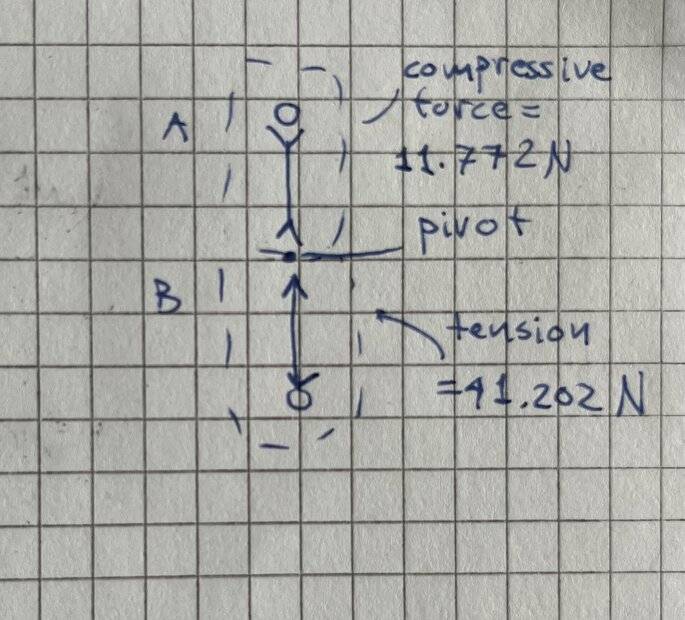 compressive
A
force =
11.772N
pivot
B
tension
=41.202 N